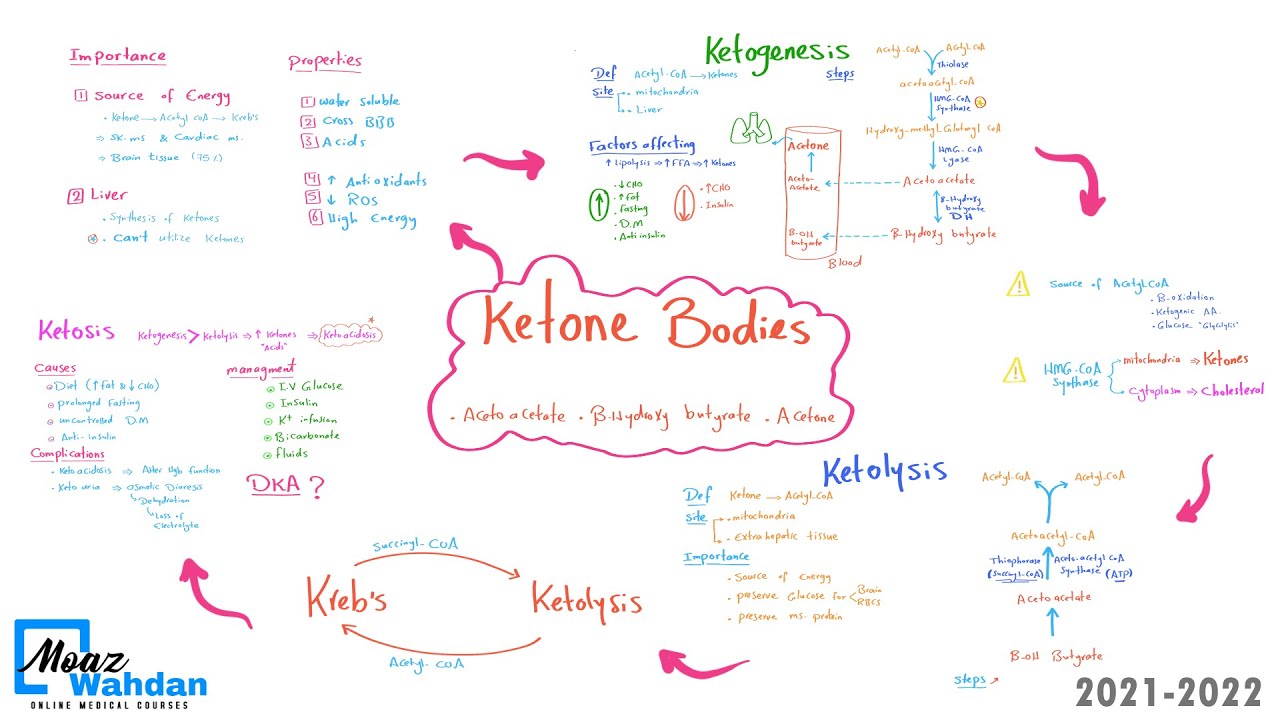 Importance
1 Source of Energy
• Ketone → Acetyl CoA → Kreb's
⇒ SK.ms & Cardiac ms.
⇒ Brain tissue (75%)
2 Liver
• Synthesis of Ketones
• Can't utilize Ketones
Properties
1 water Soluble
2 Cross BBB
3 Acids
4 ↑ Antioxidants
5 ↓ ROS
6 High Energy
Ketogenesis
Def Acetyl-CoA → Ketones
Site • mitochondria
• Liver
Factors affecting
↑ Lipolysis ⇒ ↑ FFA ⇒ ↑ Ketones
↑ • ↓ CHO
• ↑ Fat
• Fasting
• D.M
• Anti insulin
↓ • ↑ CHO
• Insulin
steps
Acetyl-CoA Acetyl-CoA
Thiolase
acetoacetyl CoA
HMG-CoA
Synthase
Hydroxy-methyl Glutaryl CoA
HMG-CoA
Lyase
Aceto acetate
B-Hydroxy
butyrate
DH
B-Hydroxy butyrate
Acetone
Aceto-
Acetate
B-OH
butyrate
Blood
Source of Acetyl CoA
• B-oxidation
• Ketogenic AA.
• Glucose "Glycolysis"
HMG-CoA
Synthase
mitochondria ⇒ Ketones
Cytoplasm ⇒ Cholesterol
Ketone Bodies
• Aceto acetate • B-Hydroxy butyrate • Acetone
Ketolysis
Def Ketone → Acetyl-CoA
Site • mitochondria
• Extrahepatic tissue
Importance
• Source of Energy
• preserve Glucose for < Brain
RBCs
• preserve ms. protein
Acetyl-CoA Acetyl-CoA
Acetoacetyl-CoA
Thiophorase
(Succinyl-CoA)
Aceto-acetyl CoA
Synthase (ATP)
Aceto acetate
B-OH Butyrate
steps
Succinyl-CoA
Kreb's
Ketolysis
Acetyl-CoA
Ketosis
Ketogenesis > Ketolysis ⇒ ↑ Ketones ⇒ Ketoacidosis
"Acids"
Causes
Diet (↑ fat & ↓ CHO)
prolonged Fasting
uncontrolled D.M
Anti-insulin
Complications
• Ketoacidosis ⇒ Alter Hgb function
• Keto uria ⇒ osmotic Diuresis
Dehydration
Loss of
Electrolyte
managment
I.V Glucose
Insulin
K+ infusion
Bicarbonate
fluids
DKA ?
Moaz
Wahdan
ONLINE MEDICAL COURSES
2021-2022